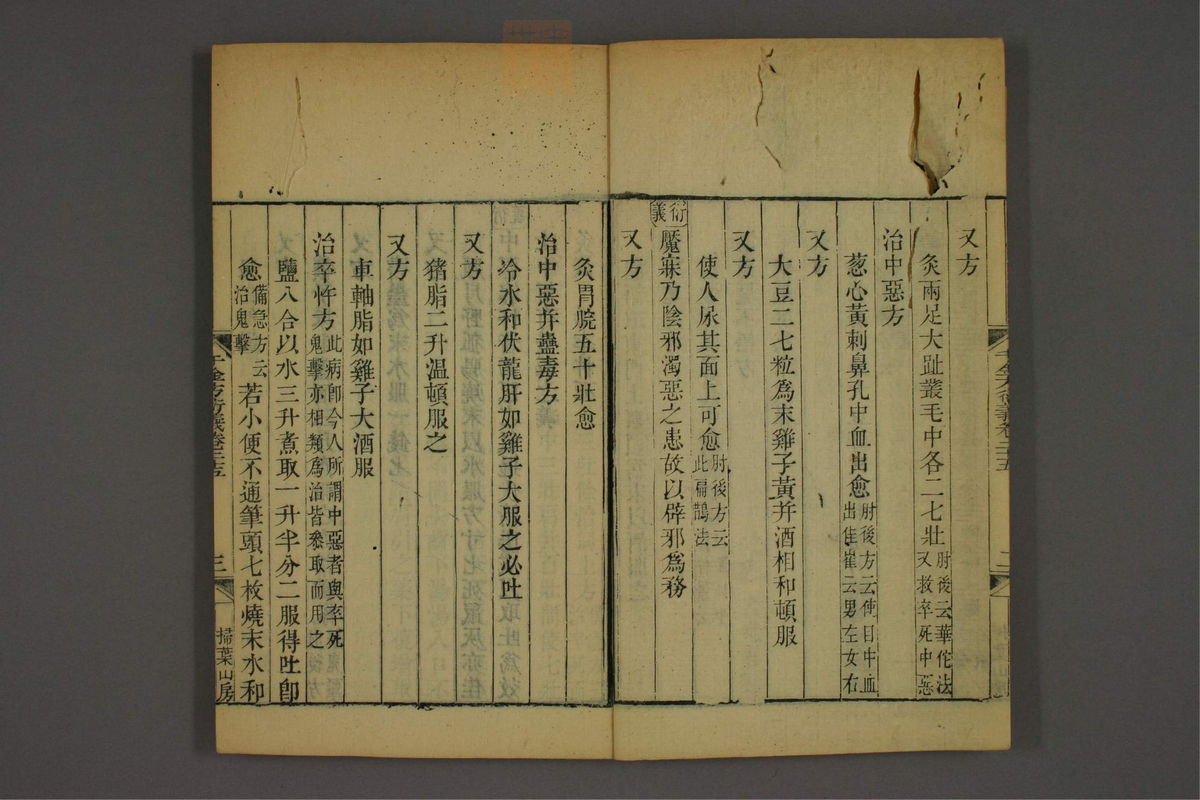 又方
灸兩足大趾叢毛中各二七壯肘後云華佗法又救卒死中惡
治中惡方
葱心黃刺鼻孔中血出愈肘後方云使目中血出佳崔云男左女右
又方
大豆二七粒為末雞子黃并酒相和頓服
又方
使人尿其面上可愈肘後方云此扁鵲法
衍義魘寐乃陰邪濁惡之患故以辟邪為務
又方
灸胃脘五十壯愈
治中惡并蠱毒方
冷水和伏龍肝如雞子大服之必吐
又方
猪脂二升溫頓服之
又方
車軸脂如雞子大酒服
治卒忤方此病卽今人所謂中惡者與卒死鬼擊亦相類為治皆參取而用之
鹽八合以水三升煮取一升半分二服得吐卽
愈備急方云治鬼擊若小便不通筆頭七枚燒末水和
千金方衍義卷二十五
三
掃葉山房